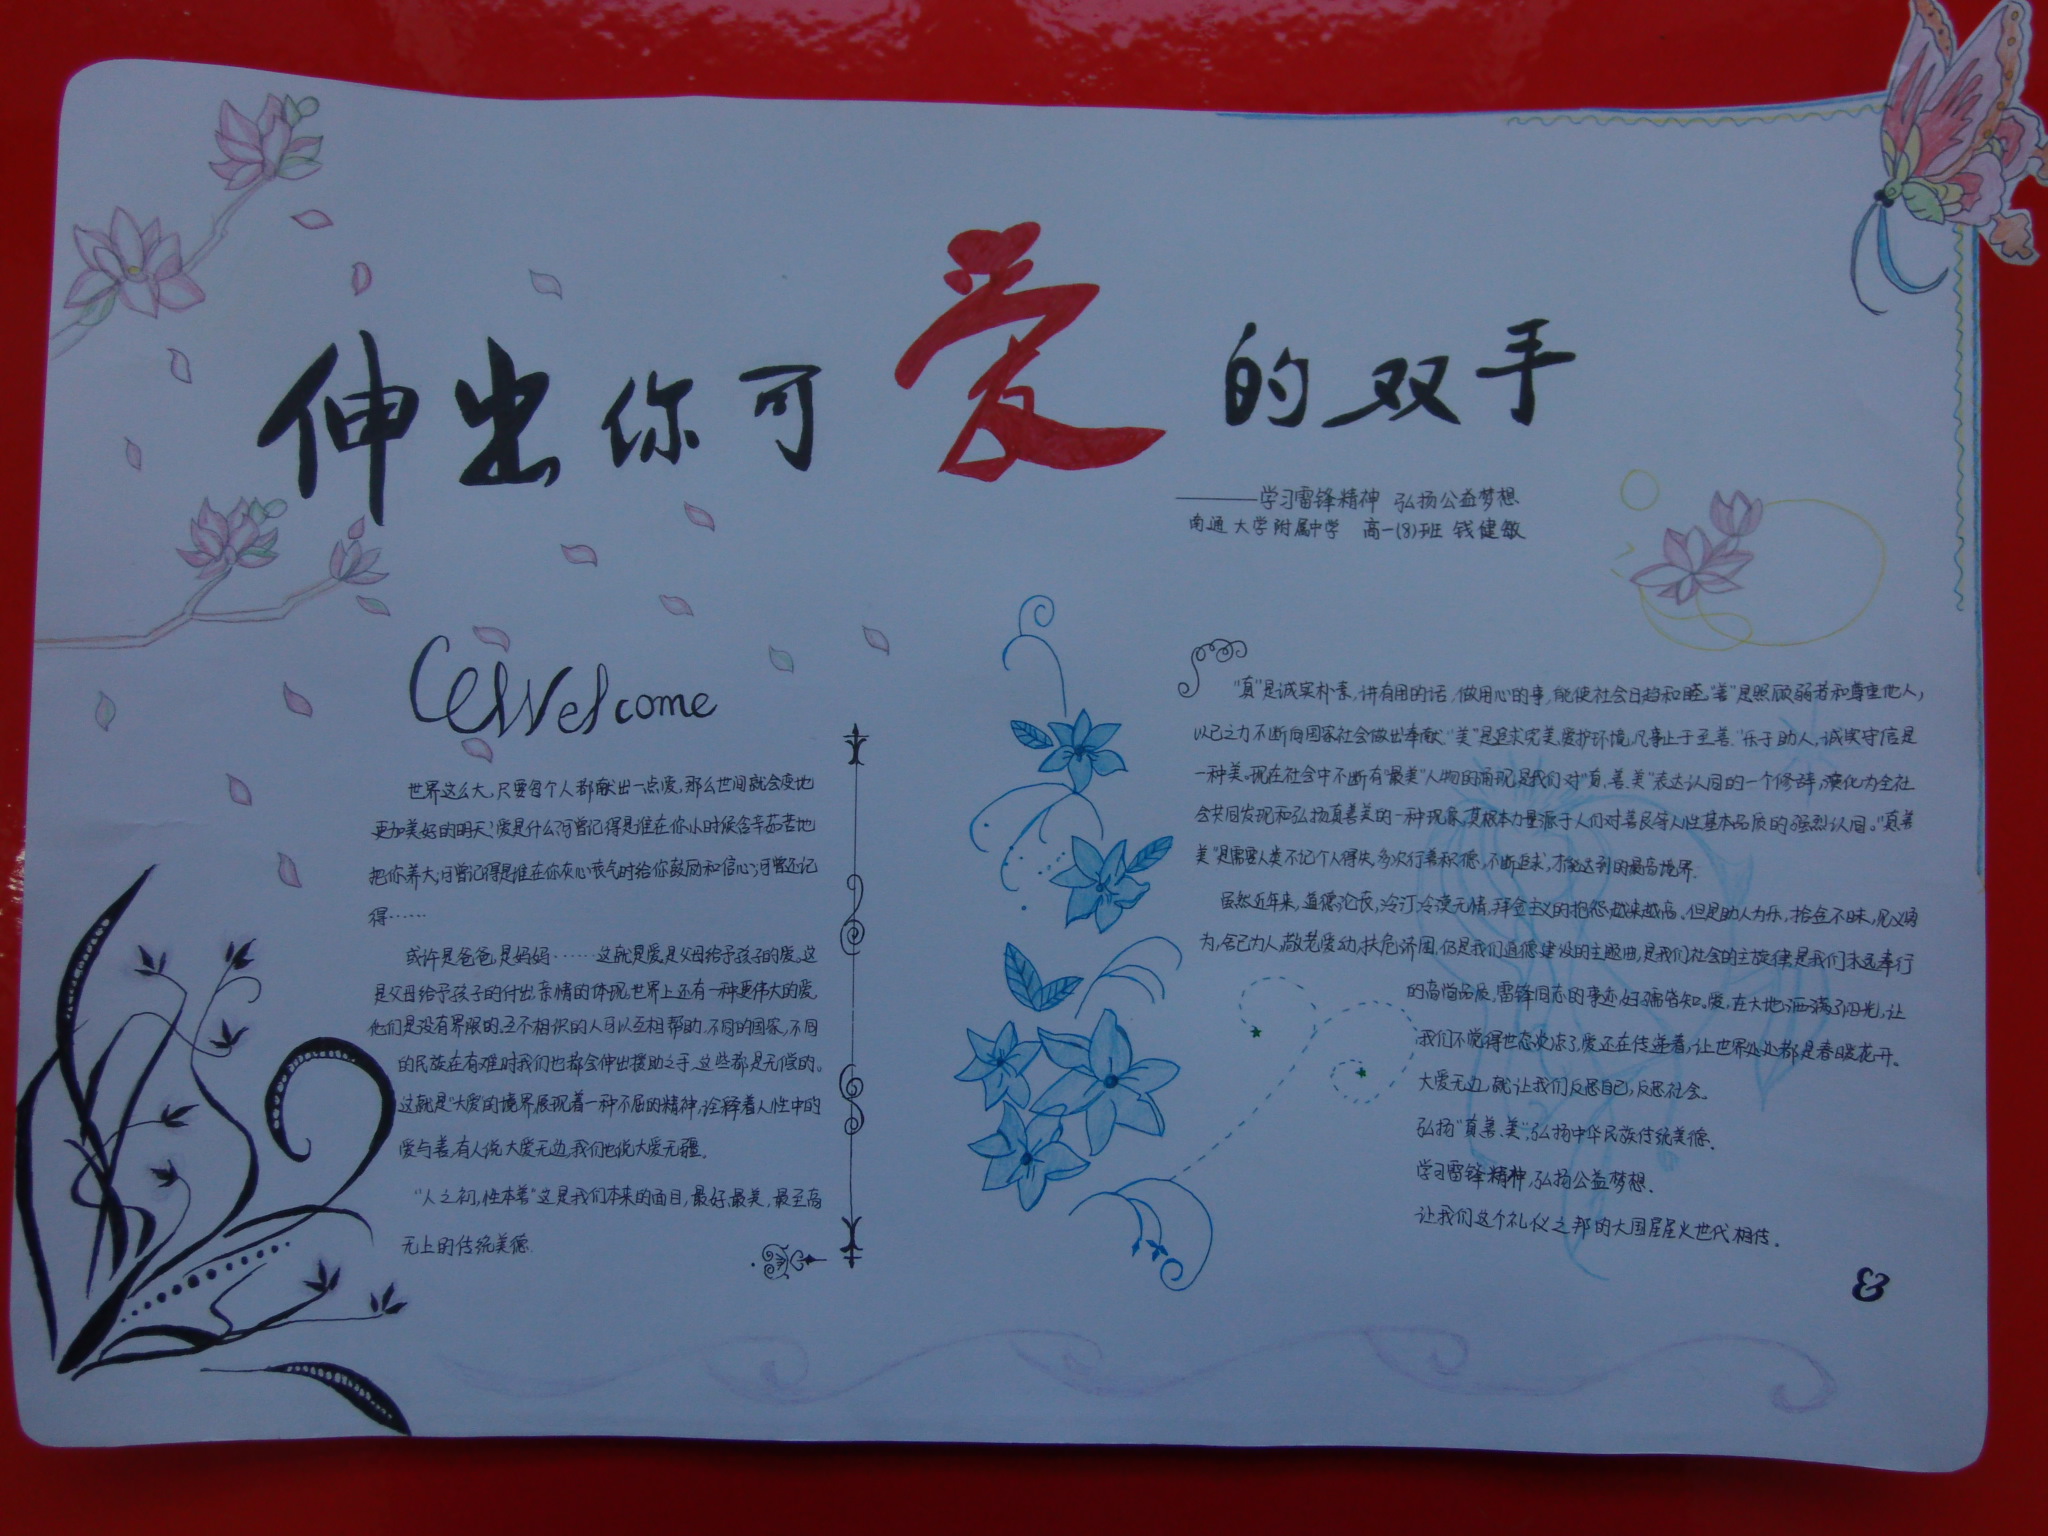 伸出你可爱的双手
——学习雷锋精神 弘扬公益梦想
南通大学附属中学 高一(8)班 钱健敏
Welcome
世界这么大,只要每个人都献出一点爱,那么世间就会变地
更加美好的明天!爱是什么?可曾记得是谁在你小时候含辛茹苦地
把你养大,可曾记得是谁在你灰心丧气时给你鼓励和信心;可曾还记
得……
或许是爸爸,是妈妈……这就是爱,是父母给予孩子的爱。这
是父母给予孩子的付出,亲情的体现。世界上还有一种更伟大的爱,
他们是没有界限的。互不相识的人可以互相帮助,不同的国家,不同
的民族在有难时我们也都会伸出援助之手,这些都是无偿的。
这就是“大爱”的境界,展现着一种不屈的精神,诠释着人性中的
爱与善,有人说大爱无边,我们也说大爱无疆。
“人之初,性本善”这是我们本来的面目,最好、最美,最至高
无上的传统美德.
“真”是诚实朴素,讲有用的话,做用心的事,能使社会日趋和睦。“善”是照顾弱者和尊重他人,
以己之力不断向国家社会做出奉献.“美”是追求完美,爱护环境,凡事止于至善.“乐于助人,诚实守信是
一种美.现在社会中不断有“最美”人物的涌现,是我们对“真,善,美”表达认同的一个修辞,演化为全社
会共同发现和弘扬真善美的一种现象,其根本力量源于人们对善良等人性基本品质的强烈认同。“真善
美”是需要人类不记个人得失,多次行善积德,不断追求,才能达到的最高境界.
虽然近年来,道德沦丧,冷汀冷漠无情,拜金主义的抱怨,越来越高。但是助人为乐,拾金不昧,见义勇
为,舍己为人,敬老爱幼,扶危济困,仍是我们道德建设的主题曲,是我们社会的主旋律,是我们永远奉行
的高尚品质,雷锋同志的事迹,妇孺皆知。爱,在大地洒满了阳光,让
我们不觉得世态炎凉了,爱还在传递着,让世界处处都是春暖花开。
大爱无边,就让我们反思自己,反思社会。
弘扬“真、善、美”,弘扬中华民族传统美德、
学习雷锋精神,弘扬公益梦想、
让我们这个礼仪之邦的大国星星火世代相传。